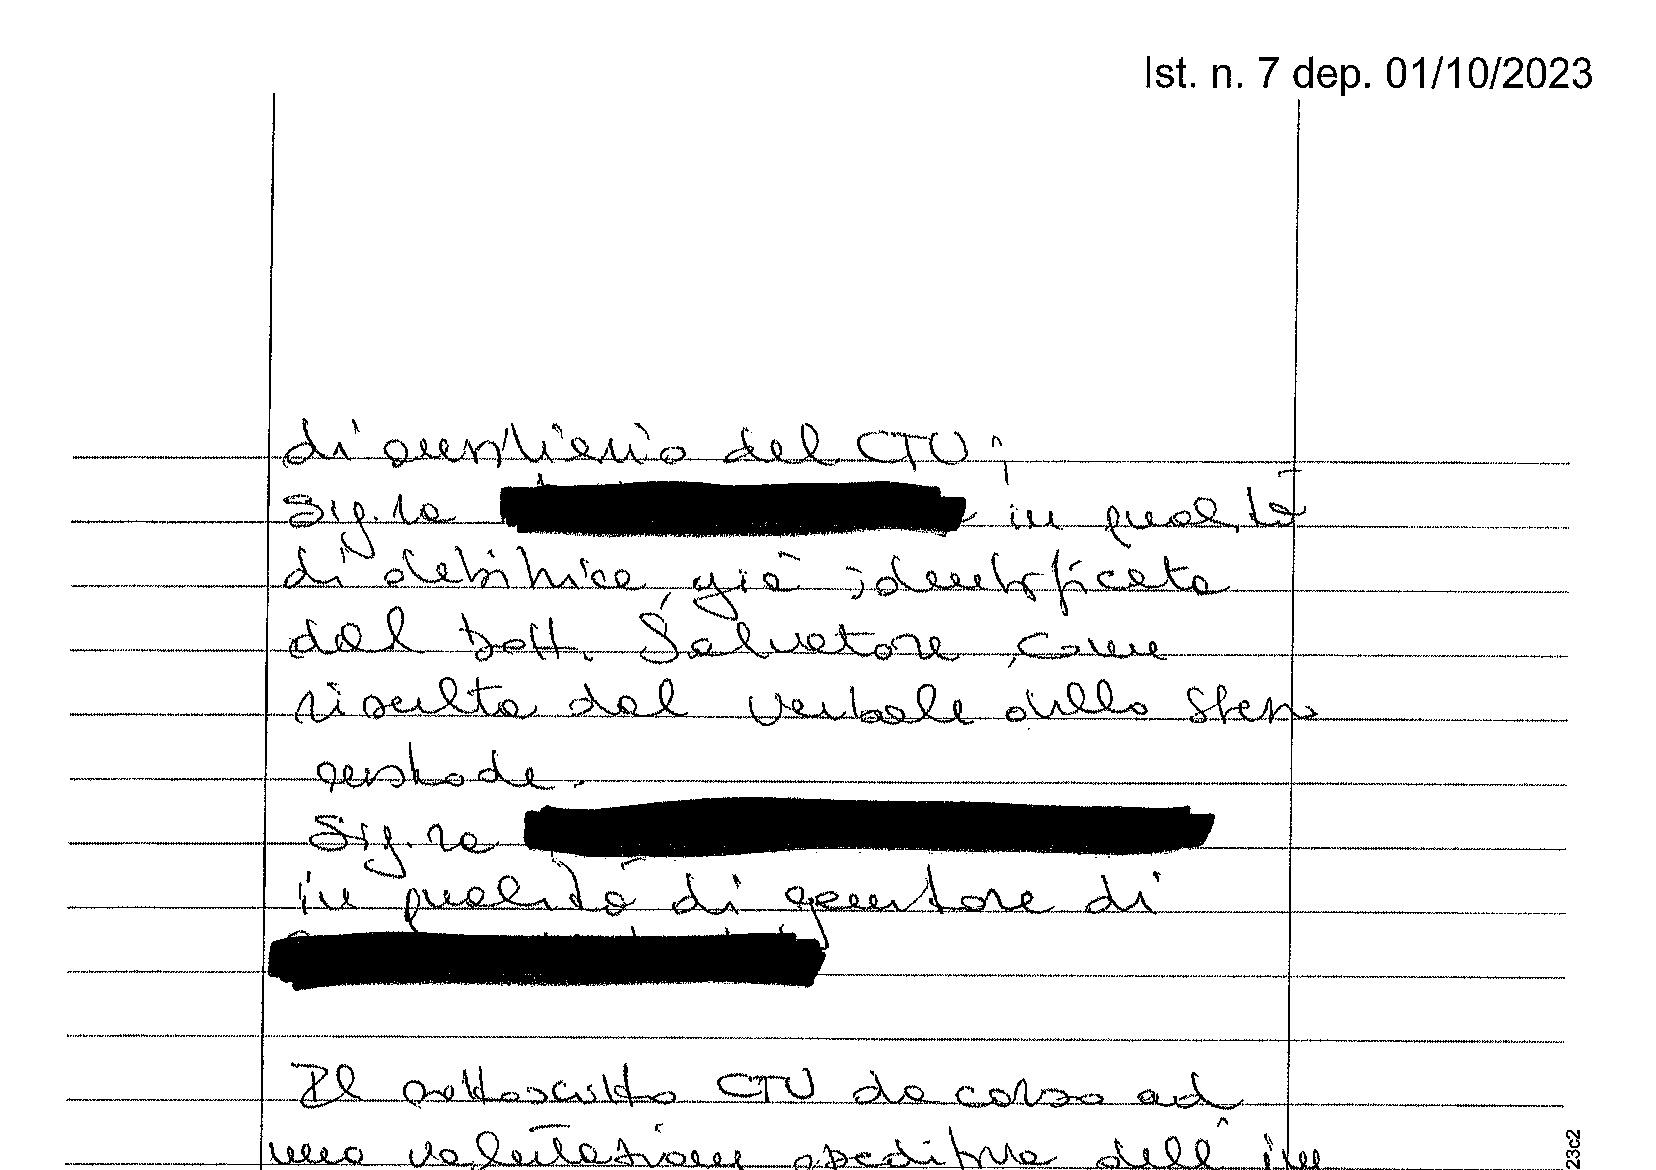 Ist. n. 7 dep. 01/10/2023
di ausiliario del CTU;
Sig.ra in qualità
di debitrice, già identificata
dal Dott. Salvatore, come
risulta dal verbale dello stesso
custode.
Sig.ra
in qualità di genitore di
Il sottoscritto CTU da corso ad
una valutazione speditiva dell'im
23c2